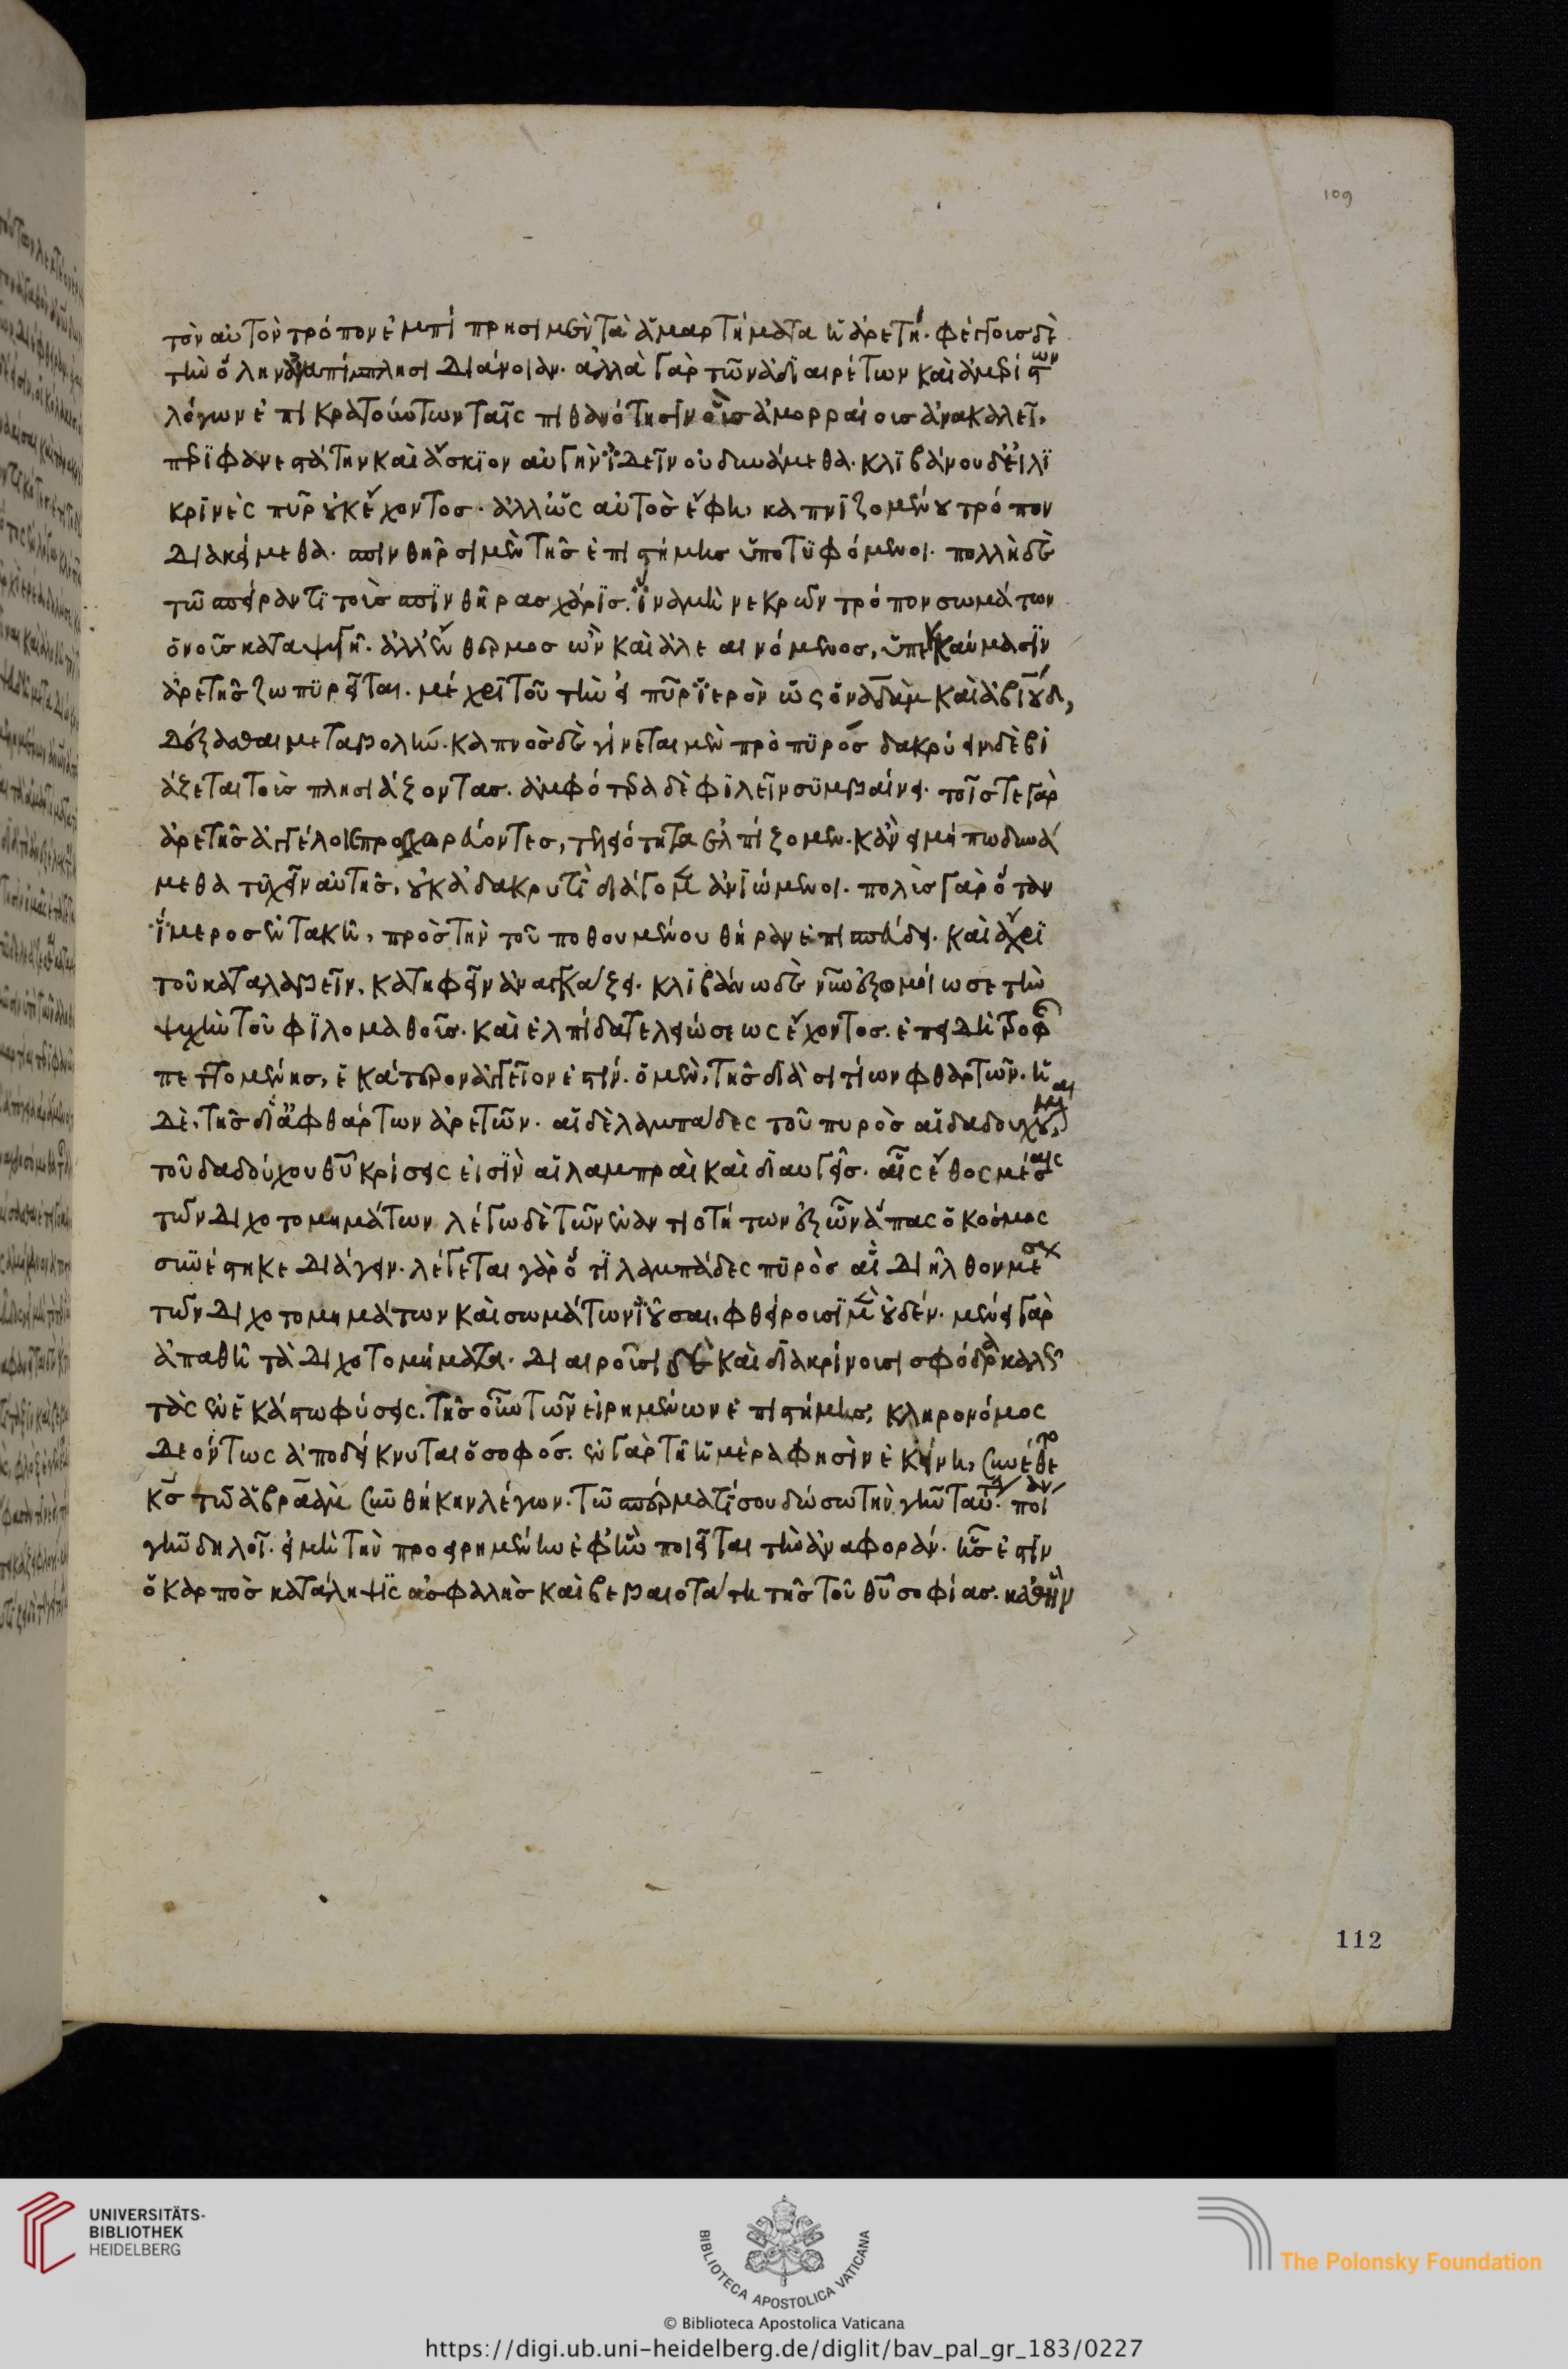 τὸν αὐτὸν τρόπον ἐμπίπρησι μὲν τὰ ἁμαρτήματα ἡ ἀρετή. φέγγους δὲ
τὴν ὅλην ἀναπίμπλησι διάνοιαν. ἀλλὰ γὰρ τῶν ἀδιαιρέτων καὶ ἀμερίστων
λόγων ἐπικρατούντων ταῖς πιθανότησιν οὓς ἀμορραίους ἀνακαλεῖ,
περιφανεστάτην καὶ ἄσκιον αὐγὴν ἰδεῖν οὐ δυνάμεθα. κλιβάνου δὲ εἰλι
κρινὲς πῦρ οὐκ ἔχοντος. ἀλλ' ὡς αὐτὸς ἔφη, καπνιζομένου τρόπον
διακείμεθα. σπινθῆρσι μὲν τῆς ἐπιστήμης ὑποτυφόμενοι. πολλὴ δὲ
τῷ σπείραντι τοὺς σπινθῆρας χάρις. ἵνα μὴ νεκρῶν τρόπον σωμάτων
ὁ νοῦς καταψυγῇ. ἀλλ' ἔνθερμος ὢν καὶ ἀλεαινόμενος, ὑπεκκαύμασιν
ἀρετῆς ζωπυρεῖται. μέχρι τοῦ τὴν εἰς πῦρ ἱερὸν ὡς ὁ ναδὰμ καὶ ἀβιούδ,
δέξασθαι μεταβολήν. καπνὸς δὲ γίνεται μὲν πρὸ πυρός δακρύειν δὲ βι
άζεται τοὺς πλησιάζοντας. ἀμφότερα δὲ φιλεῖν συμβαίνει. τοῖς τε γὰρ
ἀρετῆς ἀγγέλοις προσχαρέντες, τελειότητα ἐλπίζομεν. κἂν εἰ μήπω δυνά
μεθα τυχεῖν αὐτῆς, οὐκ ἀδακρυτὶ διάγομεν ἀνιώμενοι. πολὺς γὰρ ὅταν
ἵμερος ἐντακῇ, πρὸς τὴν τοῦ ποθουμένου θήραν ἐπισπεύδει. καὶ ἄχρι
τοῦ καταλαβεῖν, κατηφεῖν ἀναγκάζει. κλιβάνῳ δὲ νῦν ἐξωμοίωσε τὴν
ψυχὴν τοῦ φιλομαθοῦς. καὶ ἐλπίδα τελειώσεως ἔχοντος. ἐπειδὴ τροφῆς
πεττομένης, ἑκάτερον ἀγγεῖόν ἐστιν. ὁ μὲν, τῆς διὰ σιτίων φθαρτῶν. ἡ
δὲ, τῆς δι' ἀφθάρτων ἀρετῶν. αἱ δὲ λαμπάδες τοῦ πυρὸς αἱ δαδουχούμεναι,
τοῦ δαδούχου θῦ κρίσεις εἰσὶν αἱ λαμπραὶ καὶ διαυγεῖς. αἷς ἔθος μέσαις
τῶν διχοτομημάτων λέγω δὲ τῶν ἐναντιοτήτων ἐξ ὧν ἅπας ὁ κόσμος
συνέστηκε διάγειν. λέγεται γὰρ ὅτι λαμπάδες πυρὸς αἳ διῆλθον μέσον
τῶν διχοτομημάτων καὶ σωμάτων ἰοῦσαι, φθείρουσι μὲν οὐδέν. μένει γὰρ
ἀπαθῆ τὰ διχοτομήματα. διαιροῦσι δὲ καὶ διακρίνουσι σφόδρα καλῶς
τὰς ἐν ἑκάστῳ φύσεις. τῆς οὖν τῶν εἰρημένων ἐπιστήμης, κληρονόμος
δεόντως ἀποδείκνυται ὁ σοφός. ἐν γὰρ τῇ ἡμέρᾳ φησὶν ἐκείνῃ, συνέθετο
κς τῷ ἀβραὰμ συνθήκην λέγων. τῷ σπέρματί σου δώσω τὴν γῆν ταύτην. ποίαν
γῆν δηλοῖ. εἰ μὴ τὴν προειρημένην ἐφ' ἣν ποιεῖται τὴν ἀναφοράν. ἧς ἐστιν
ὁ καρπὸς κατάληψις ἀσφαλὴς καὶ βεβαιοτάτη τῆς τοῦ θῦ σοφίας. καθ' ἣν
109
112
UNIVERSITÄTS-
BIBLIOTHEK
HEIDELBERG
BIBLIOTECA APOSTOLICA VATICANA
The Polonsky Foundation
© Biblioteca Apostolica Vaticana
https://digi.ub.uni-heidelberg.de/diglit/bav_pal_gr_183/0227